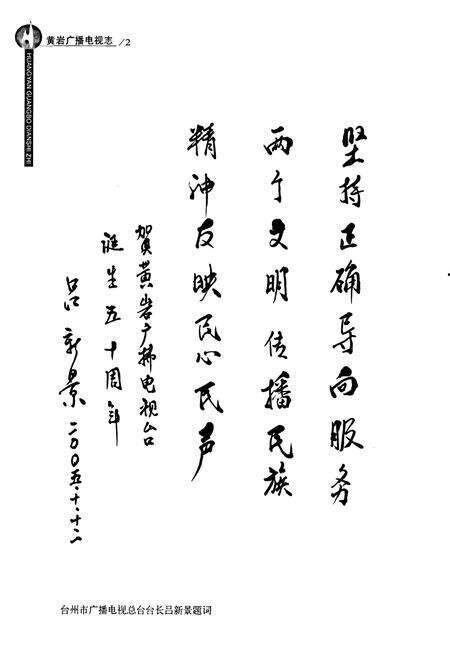 黄岩广播电视志 /2
HUANGYAN GUANGBO DIANSHI ZHI
坚持正确导向服务
两个文明传播民族
精神反映民心民声
贺黄岩广播电视台
诞生五十周年
吕新景 二〇〇五·十·十二
台州市广播电视总台台长吕新景题词